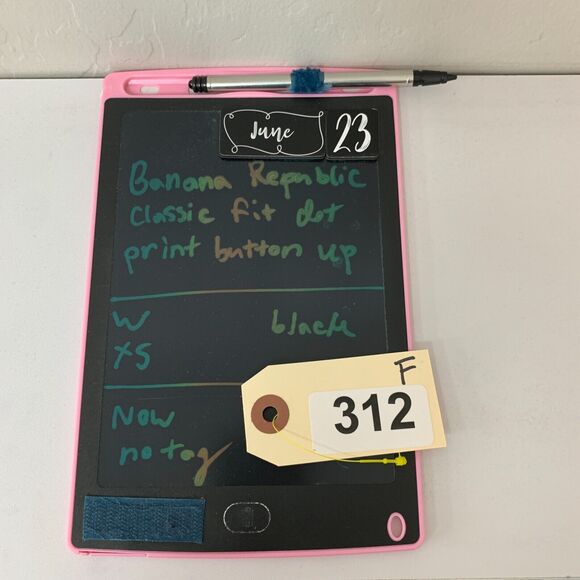 June 23
Banana Republic
Classic fit dot
print button up
W black
XS
F
312
Now
no tag